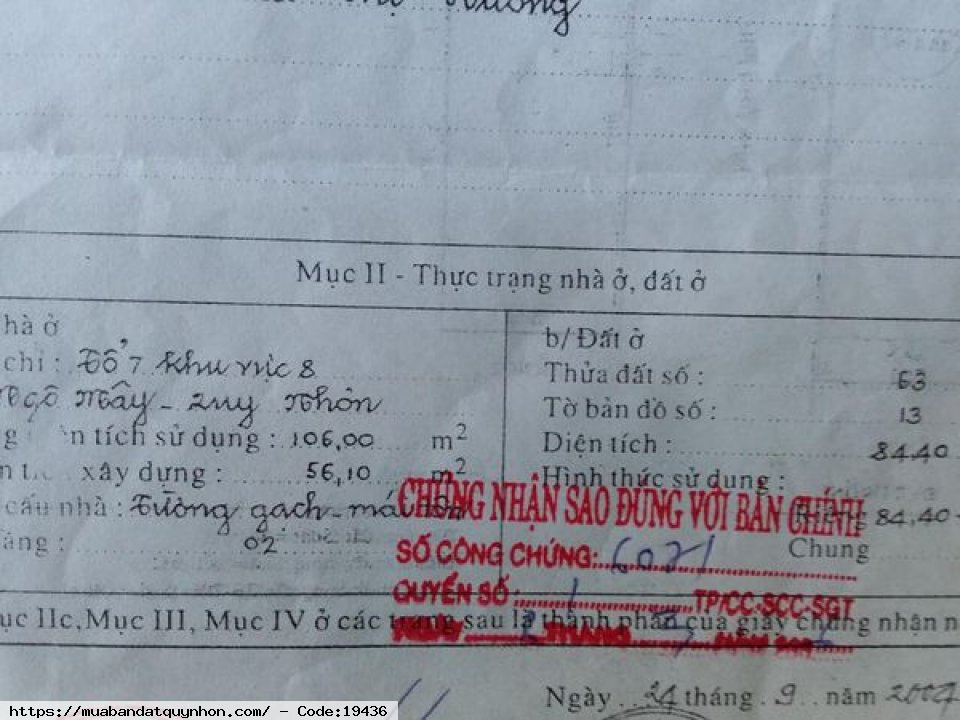 Thị Hường
Mục II - Thực trạng nhà ở, đất ở
hà ở
chỉ : Tổ 7 Khu vực 8
Ngô Mây - Quy Nhơn
tích sử dụng : 106,00 m2
xây dựng : 56,10 m2
cấu nhà : Tường gạch - mái
tầng : 02
b/ Đất ở
Thửa đất số : 63
Tờ bản đồ số : 13
Diện tích : 84,40
Hình thức sử dụng :
84,40
Chung
CHỨNG NHẬN SAO ĐÚNG VỚI BẢN CHÍNH
SỐ CÔNG CHỨNG:
QUYỂN SỐ : 1 TP/CC-SCC-SGT
THÁNG
ục IIc, Mục III, Mục IV ở các trang sau là thành phần của giấy chứng nhận n
Ngày 24 tháng 9 năm 2004
https://muabandatquynhon.com/ - Code:19436